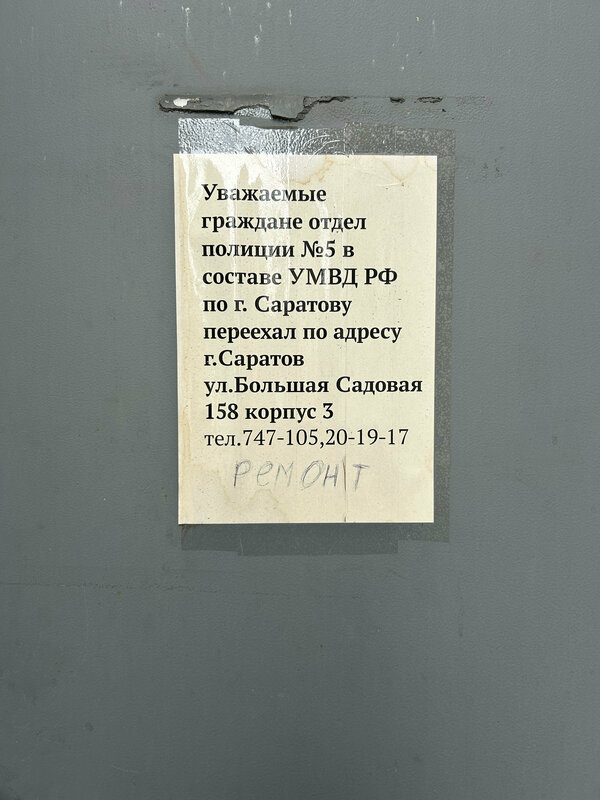 Уважаемые
граждане отдел
полиции №5 в
составе УМВД РФ
по г. Саратову
переехал по адресу
г.Саратов
ул.Большая Садовая
158 корпус 3
тел.747-105,20-19-17
ремонт